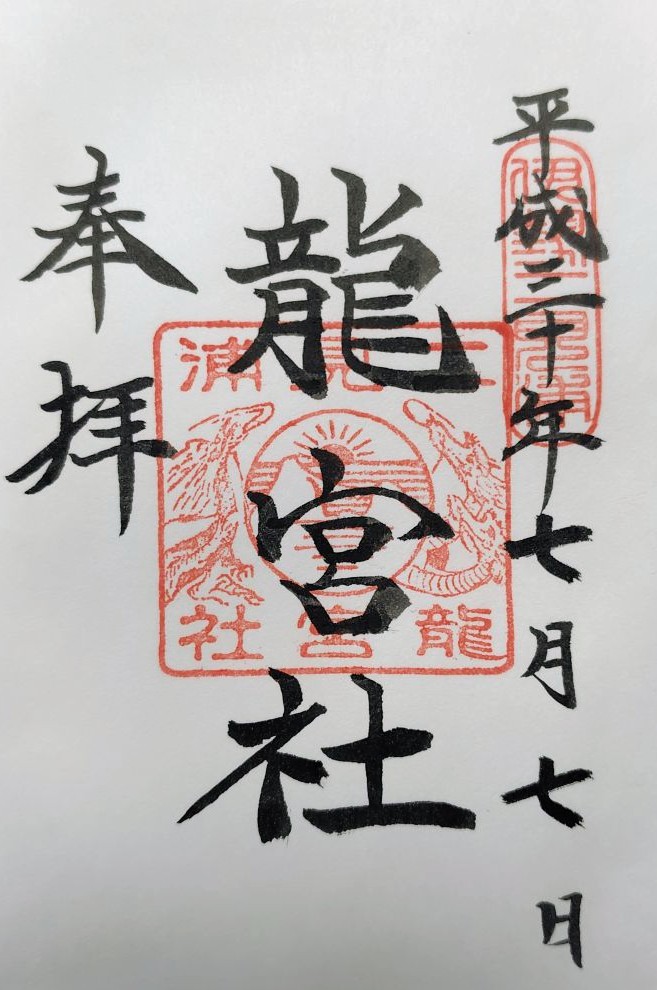 平成三十年七月七日
龍宮社
奉拝
二見浦
龍宮社